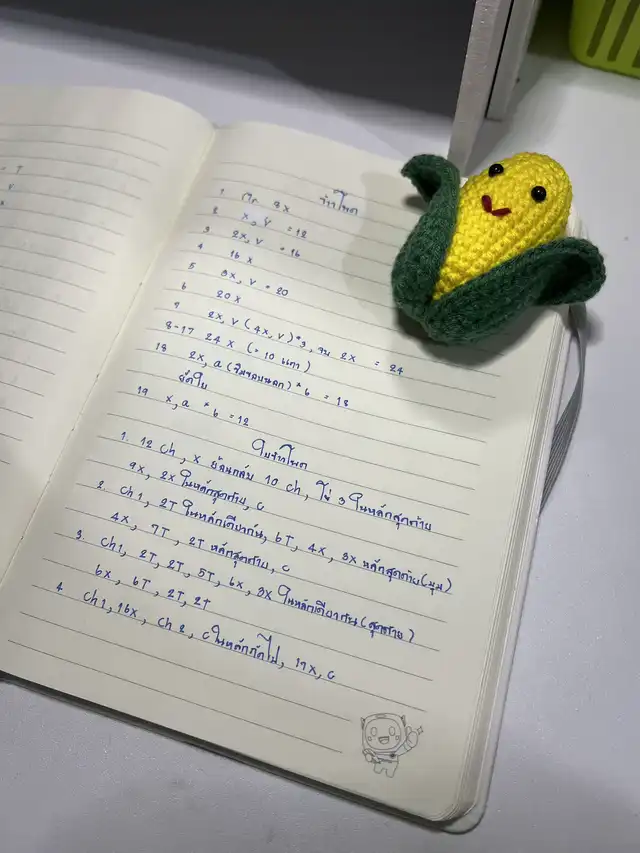 = T
v
x
ข้าวโพด
1 Mr 8x
2 x, v = 12
3 2x, v = 16
4 16 x
5 3x, v = 20
6 20 x
7 2x, v (4x, v)*3, จบ 2x = 24
8-17 24 x (= 10 แถว)
18 2x, a (จิ้มขอบนอก) * 6 = 18
ยัดใย
19 x, a * 6 = 12
ใบข้าวโพด
1. 12 ch, x ย้อนกลับ 10 ch, ใส่ 3 ในหลักสุดท้าย
9x, 2x ในหลักสุดท้าย, c
2. ch 1, 2T ในหลักเดียวกัน, 6T, 4x, 3x หลักสุดท้าย(มุม)
4x, 7T, 2T หลักสุดท้าย, c
3. ch1, 2T, 2T, 5T, 6x, 3x ในหลักเดียวกัน (สุดท้าย)
6x, 6T, 2T, 2T
4 ch1, 16x, ch 2, c ในหลักถัดไป, 17x, c